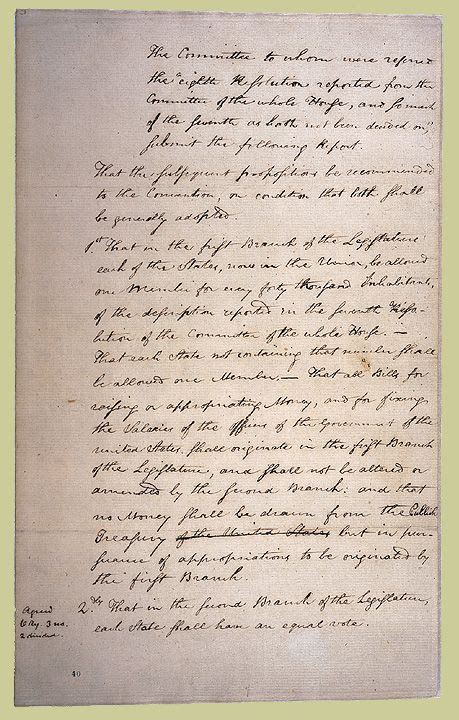 The Committee to whom were referred
the "eighth Resolution reported from the
Committee of the whole House, and so much
of the seventh as hath not been decided on,"
submit the following Report.
That the subsequent propositions be recommended
to the Convention, on condition that both shall
be generally adopted.
1.st That in the first Branch of the Legislature
each of the States, now in the Union, be allowed
one Member for every forty thousand Inhabitants,
of the description reported in the seventh Reso-
lution of the Committee of the whole House. —
That each State not containing that number shall
be allowed one Member. — That all Bills for
raising or appropriating Money, and for fixing
the Salaries of the Officers of the Government of the
united States shall originate in the first Branch
of the Legislature, and shall not be altered or
amended by the second Branch: and that
no Money shall be drawn from the Publick
Treasury of the United States but in pur-
suance of appropriations to be originated by
the first Branch.
2.dly That in the second Branch of the Legislature,
each State shall have an equal vote.
Agreed
6 Ay. 3 no.
2 divided.
40